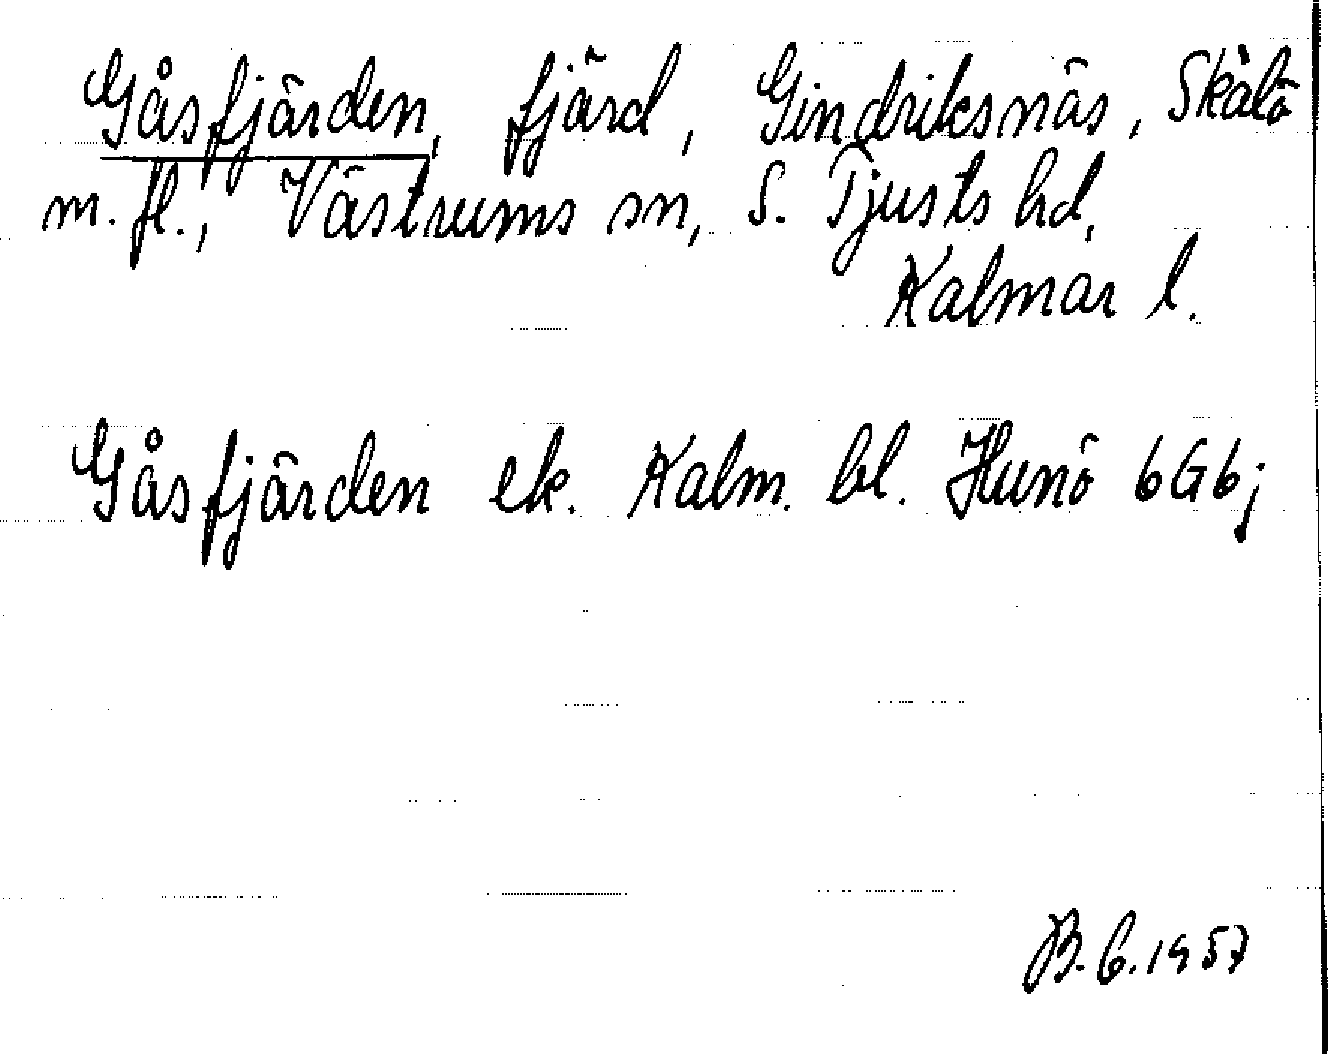 Gåsfjärden, fjärd, Gindriksnäs, Skälö
m. fl., Västrums sn, S. Tjusts hd,
Kalmar l.
Gåsfjärden ek. Kalm. bl. Hunö 6G6j
B. C. 1957